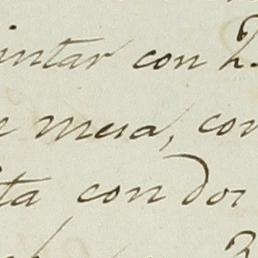 intar con 2
e mesa, con
ta con dos